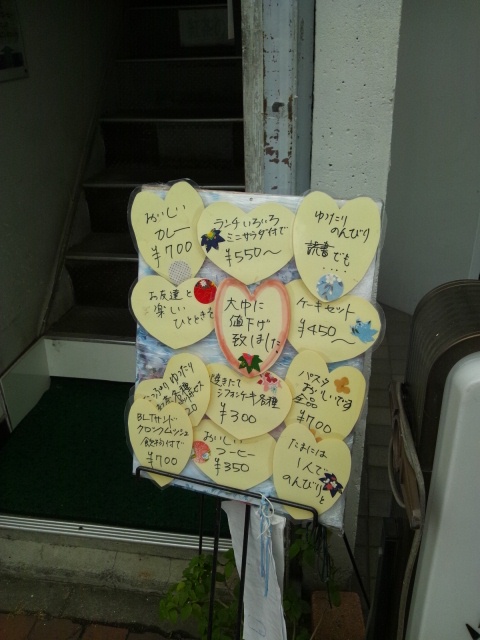 おいしい
カレー
¥700
ランチいろいろ
ミニサラダ付で
¥550〜
ゆったり
のんびり
読書でも
....
お友達と
楽しい
ひとときを
大巾に
値下げ
致しました
ケーキセット
¥450〜
ゆったり
各種
焼きたて
シフォンケーキ各種
¥300
パスタ
おいしいです
全品
¥700
BLTサンド
クロックムッシュ
飲物付で
¥700
おいしい
コーヒー
¥350
たまには
1人で
のんびりと